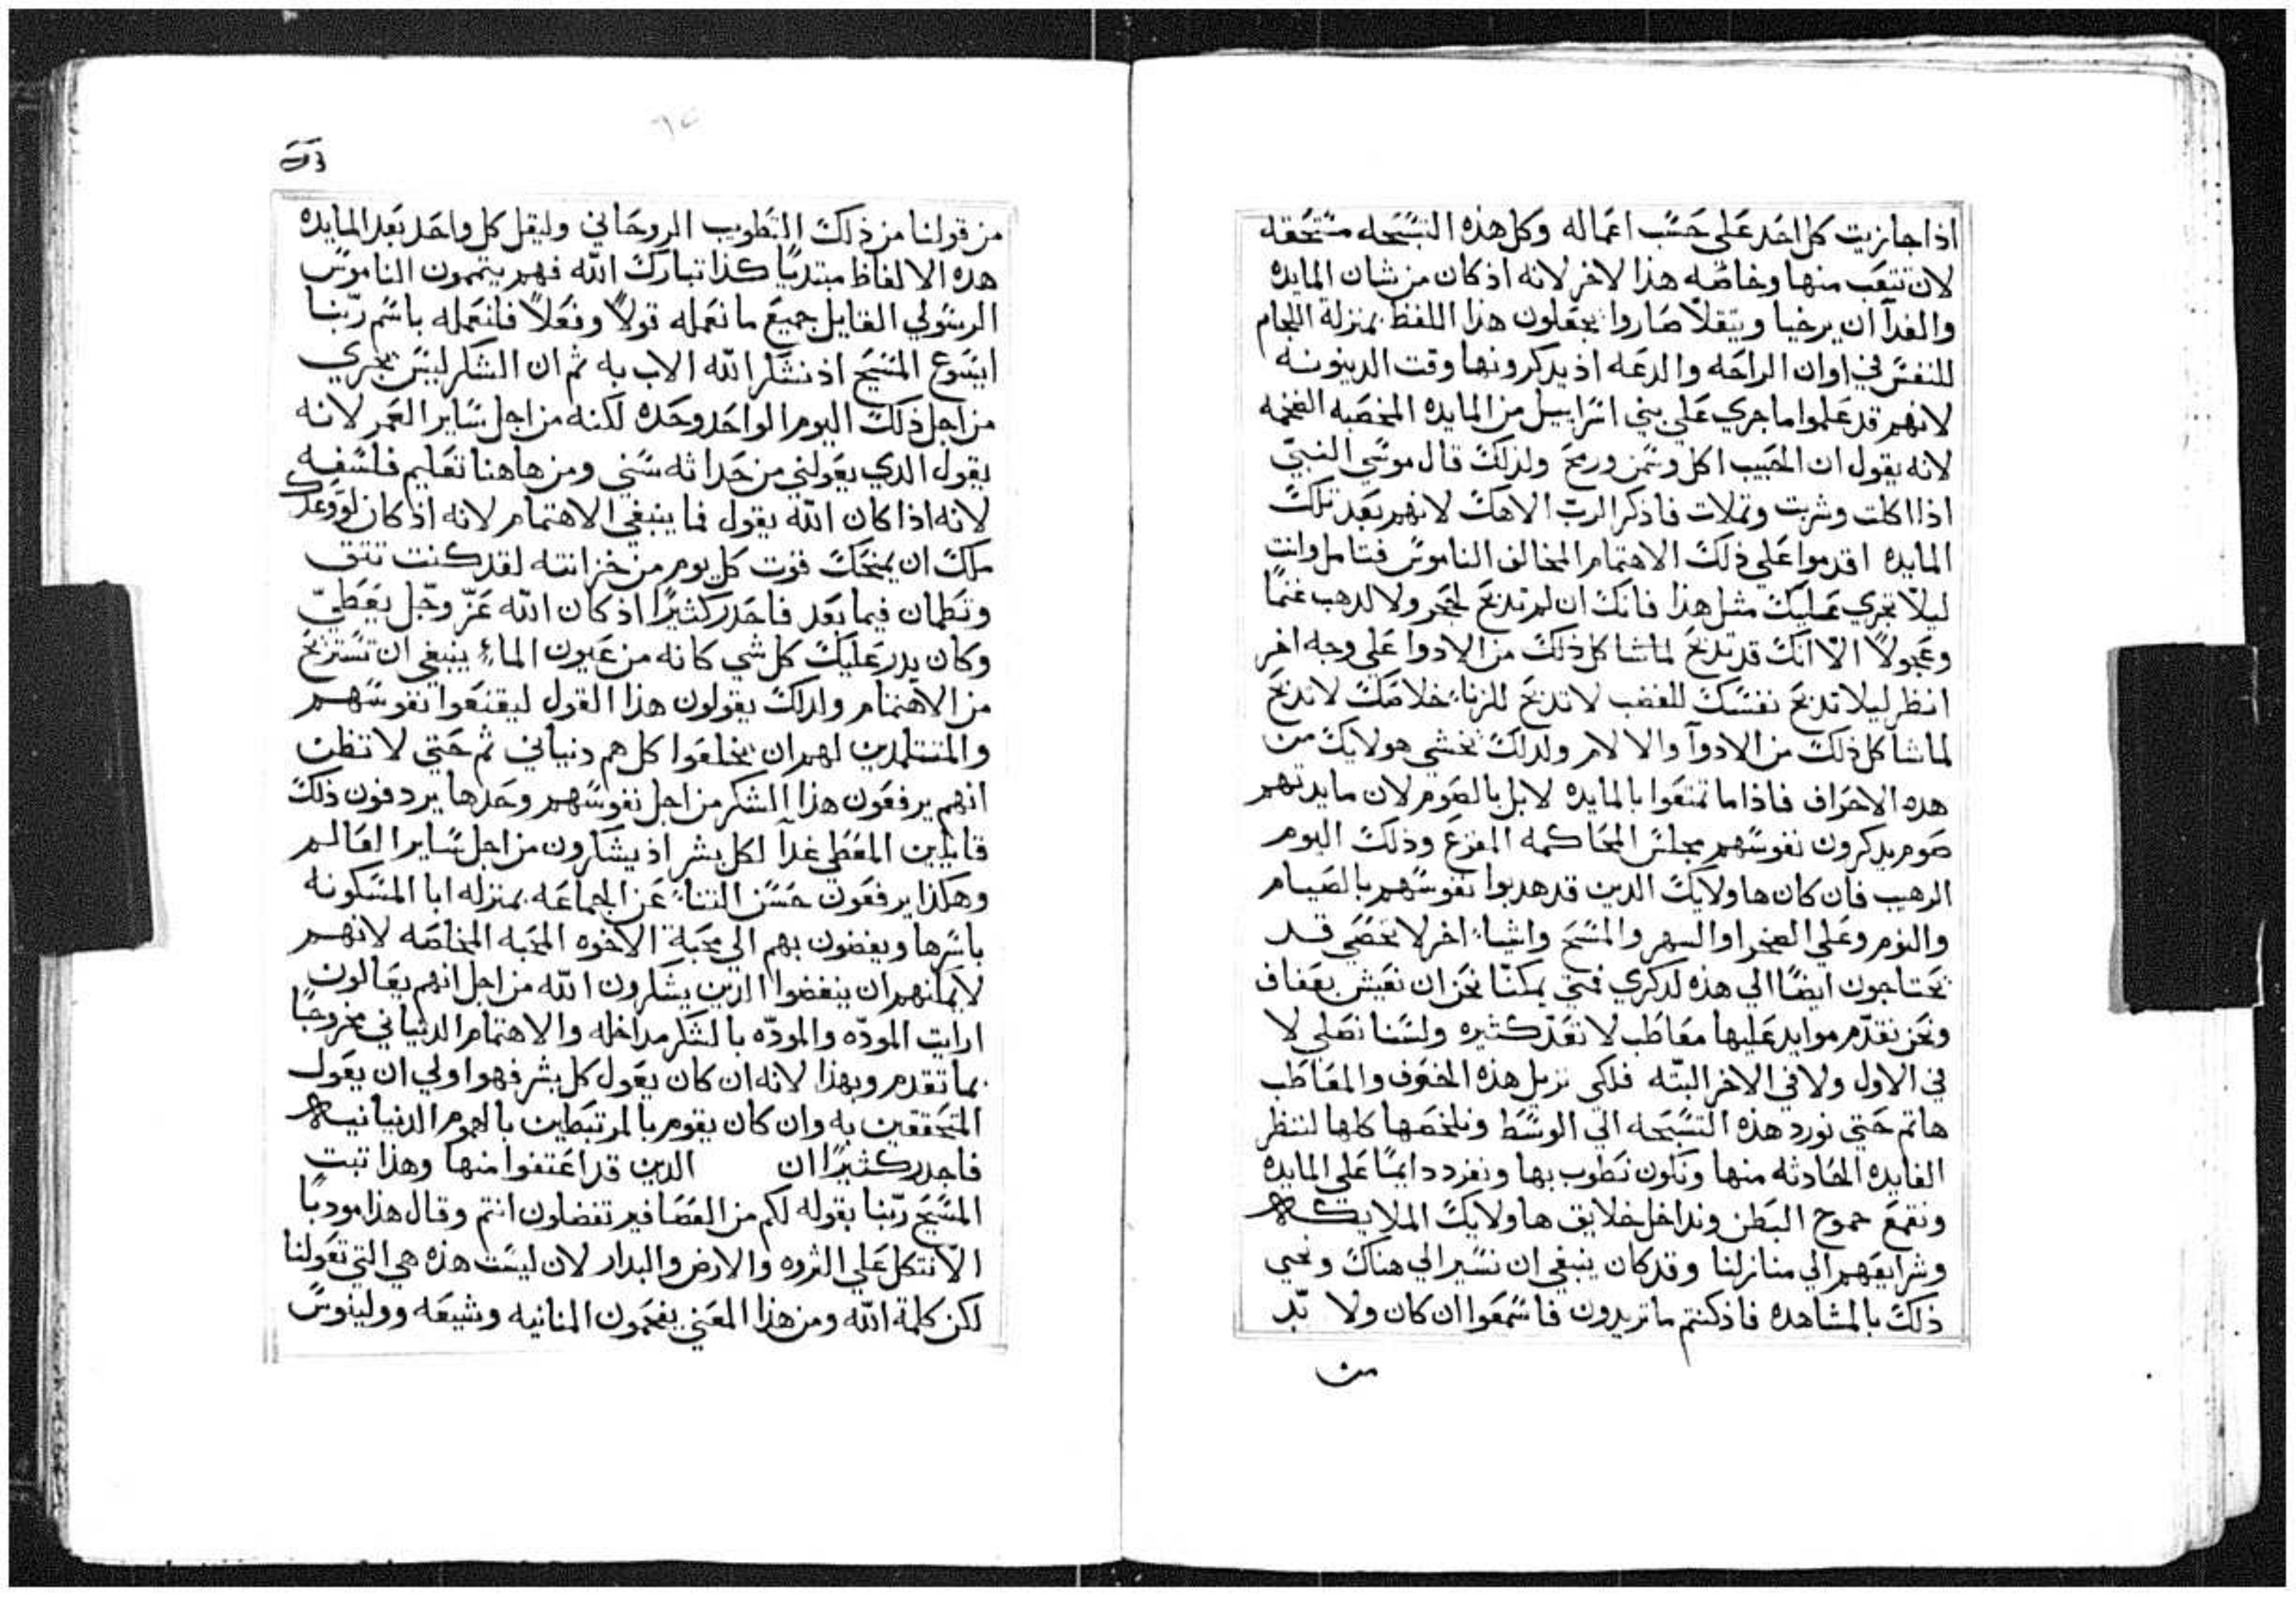 اذا جازيت كل احد على حسب اعماله وكل هذه التسبحه مستحقه
لان تتعب منها وخاصه هذا الاخر لانه اذ كان من شان المايده
والغدآ ان يرخيا ويثقلا صاروا يجعلون هذا اللفظ بمنزلة اللجام
للنفس في اوان الراحه والدعه اذ يدكرونها وقت الدينونه
لانهم قد علموا ما جري علي بني اسراييل من المايده المخصبه الضخمه
لانه يقول ان الحبيب اكل وسمن ورمح ولذلك قال موسي النبيّ
اذا اكلت وشربت وتملات فاذكر الربّ الاهك لانهم بعد تلك
المايده اقدموا علي ذلك الاهتمام المخالف الناموس فتامل وانت
ليلّا تجري عليك مثل هذا فانك ان لم تدبح لحجر ولا لدهب غنمًا
وعجولاً الّا انك قد تدبح لما شا كل ذلك من الادوا علي وجه اخر
انظر ليلا تدبح نفسك للغضب لا تدبح للزناء خلاصك لا تدبح
لما شاكل ذلك من الادوآ والالام ولدلك تخشي هولايك من
هده الاحراف فاذا ما تمتعوا بالمايده لا بل بالصوم لان مايدتهم
صوم يدكرون نفوسهم مجلس المحاكمه المفزع وذلك اليوم
الرهيب فان كان هاولايك الدين قد هدبوا نفوسهم بالصيام
والنوم وعلي الصحرا والسهر والمسح واشياء اخر لا تحصي قد
يحتاجون ايضًا الي هذه لدكري فمتي يمكنّا نحن ان نعيش بعفاف
ونحن نقدّم موايد عليها معاطب لا تعدّ كثيره ولسنا نصلي لا
في الاول ولا في الاخر البتّه فلكي نزيل هذه الحتوف والمعاطب
هاتم حتي نورد هذه التسبحه الي الوسط ونلخصها كلها لننظر
الفايده الحادثه منها ونكون نطوب بها ونغرد دايمًا علي المايده
ونقمع جموح البطن ونداخل خلايق هاولايك الملايكه
وشرايعهم الي منازلنا وقد كان ينبغي ان نسير الي هناك ونحيي
ذلك بالمشاهده فاذ كنتم ما تريدون فاسمعوا ان كان ولا بّد
من
من قولنا من ذلك التطويب الروحاني وليقل كل واحد بعد المايده
هده الالفاظ مبتديًا كذا تبارك الله فهم يتممون الناموس
الرسولي القايل جميع ما نعمله قولاً وفعلاً فلنعمله باسم ربّنا
ايسوع المسيح اذ نشكر الله الاب به ثم ان الشكر ليس يجري
من اجل ذلك اليوم الواحد وحده لكنه من اجل ساير العمر لانه
يقول الدي يعولني من حداثه سني ومن هاهنا تعليم فلسفيه
لانه اذا كان الله يقول فما ينبغي الاهتمام لانه اذ كان لو وعدك
ملك ان يمنحك قوت كل يوم من خزانته لقد كنت تثق
وتطمان فيما بعد فاجدر كثيرًا اذ كان الله عزّ وجّل يعطيّ
وكان يدر عليك كل شي كانه من عيون الماء ينبغي ان تستريح
من الاهتمام ولدلك يقولون هذا القول ليقنعوا نفوسهم
والمتتلمدين لهم ان يخلعوا كل هم دنياني ثم حتي لا تظن
انهم يرفعون هذا الشكر من اجل نفوسهم وحدها يردفون ذلك
قايلين المعطي غدآ لكل بشر اذ يشكرون من اجل ساير العالم
وهكذا يرفعون حسن الثناء عن الجماعه بمنزله ابا المسكونه
باسرها ويفضون بهم الي محبة الاخوه المحبه الخاصه لانهم
لا يمكنهم ان يبغضوا الدين يشكرون الله من اجل انهم يعالون
ارايت المودّه والمودّه بالشكر مداخله والاهتمام الدنياني مخروجًا
بما تقدم وبهذا لانه ان كان يعول كل بشر فهو اولي ان يعول
المتحققين به وان كان يقوم بالمرتبطين بالهموم الدنيانيه
فاجدر كثيرًا ان الدين قد اعتفوا منها وهذا تبت
المسيح ربّنا بقوله لكم من العصافير تفضلون انتم وقال هذا مودبًا
الّا نتكل علي الثروه والارض والبدار لان ليست هذه هي التي تعولنا
لكن كلمة الله ومن هذا المعني يفحمون المنانيه وشيعه وولينوس